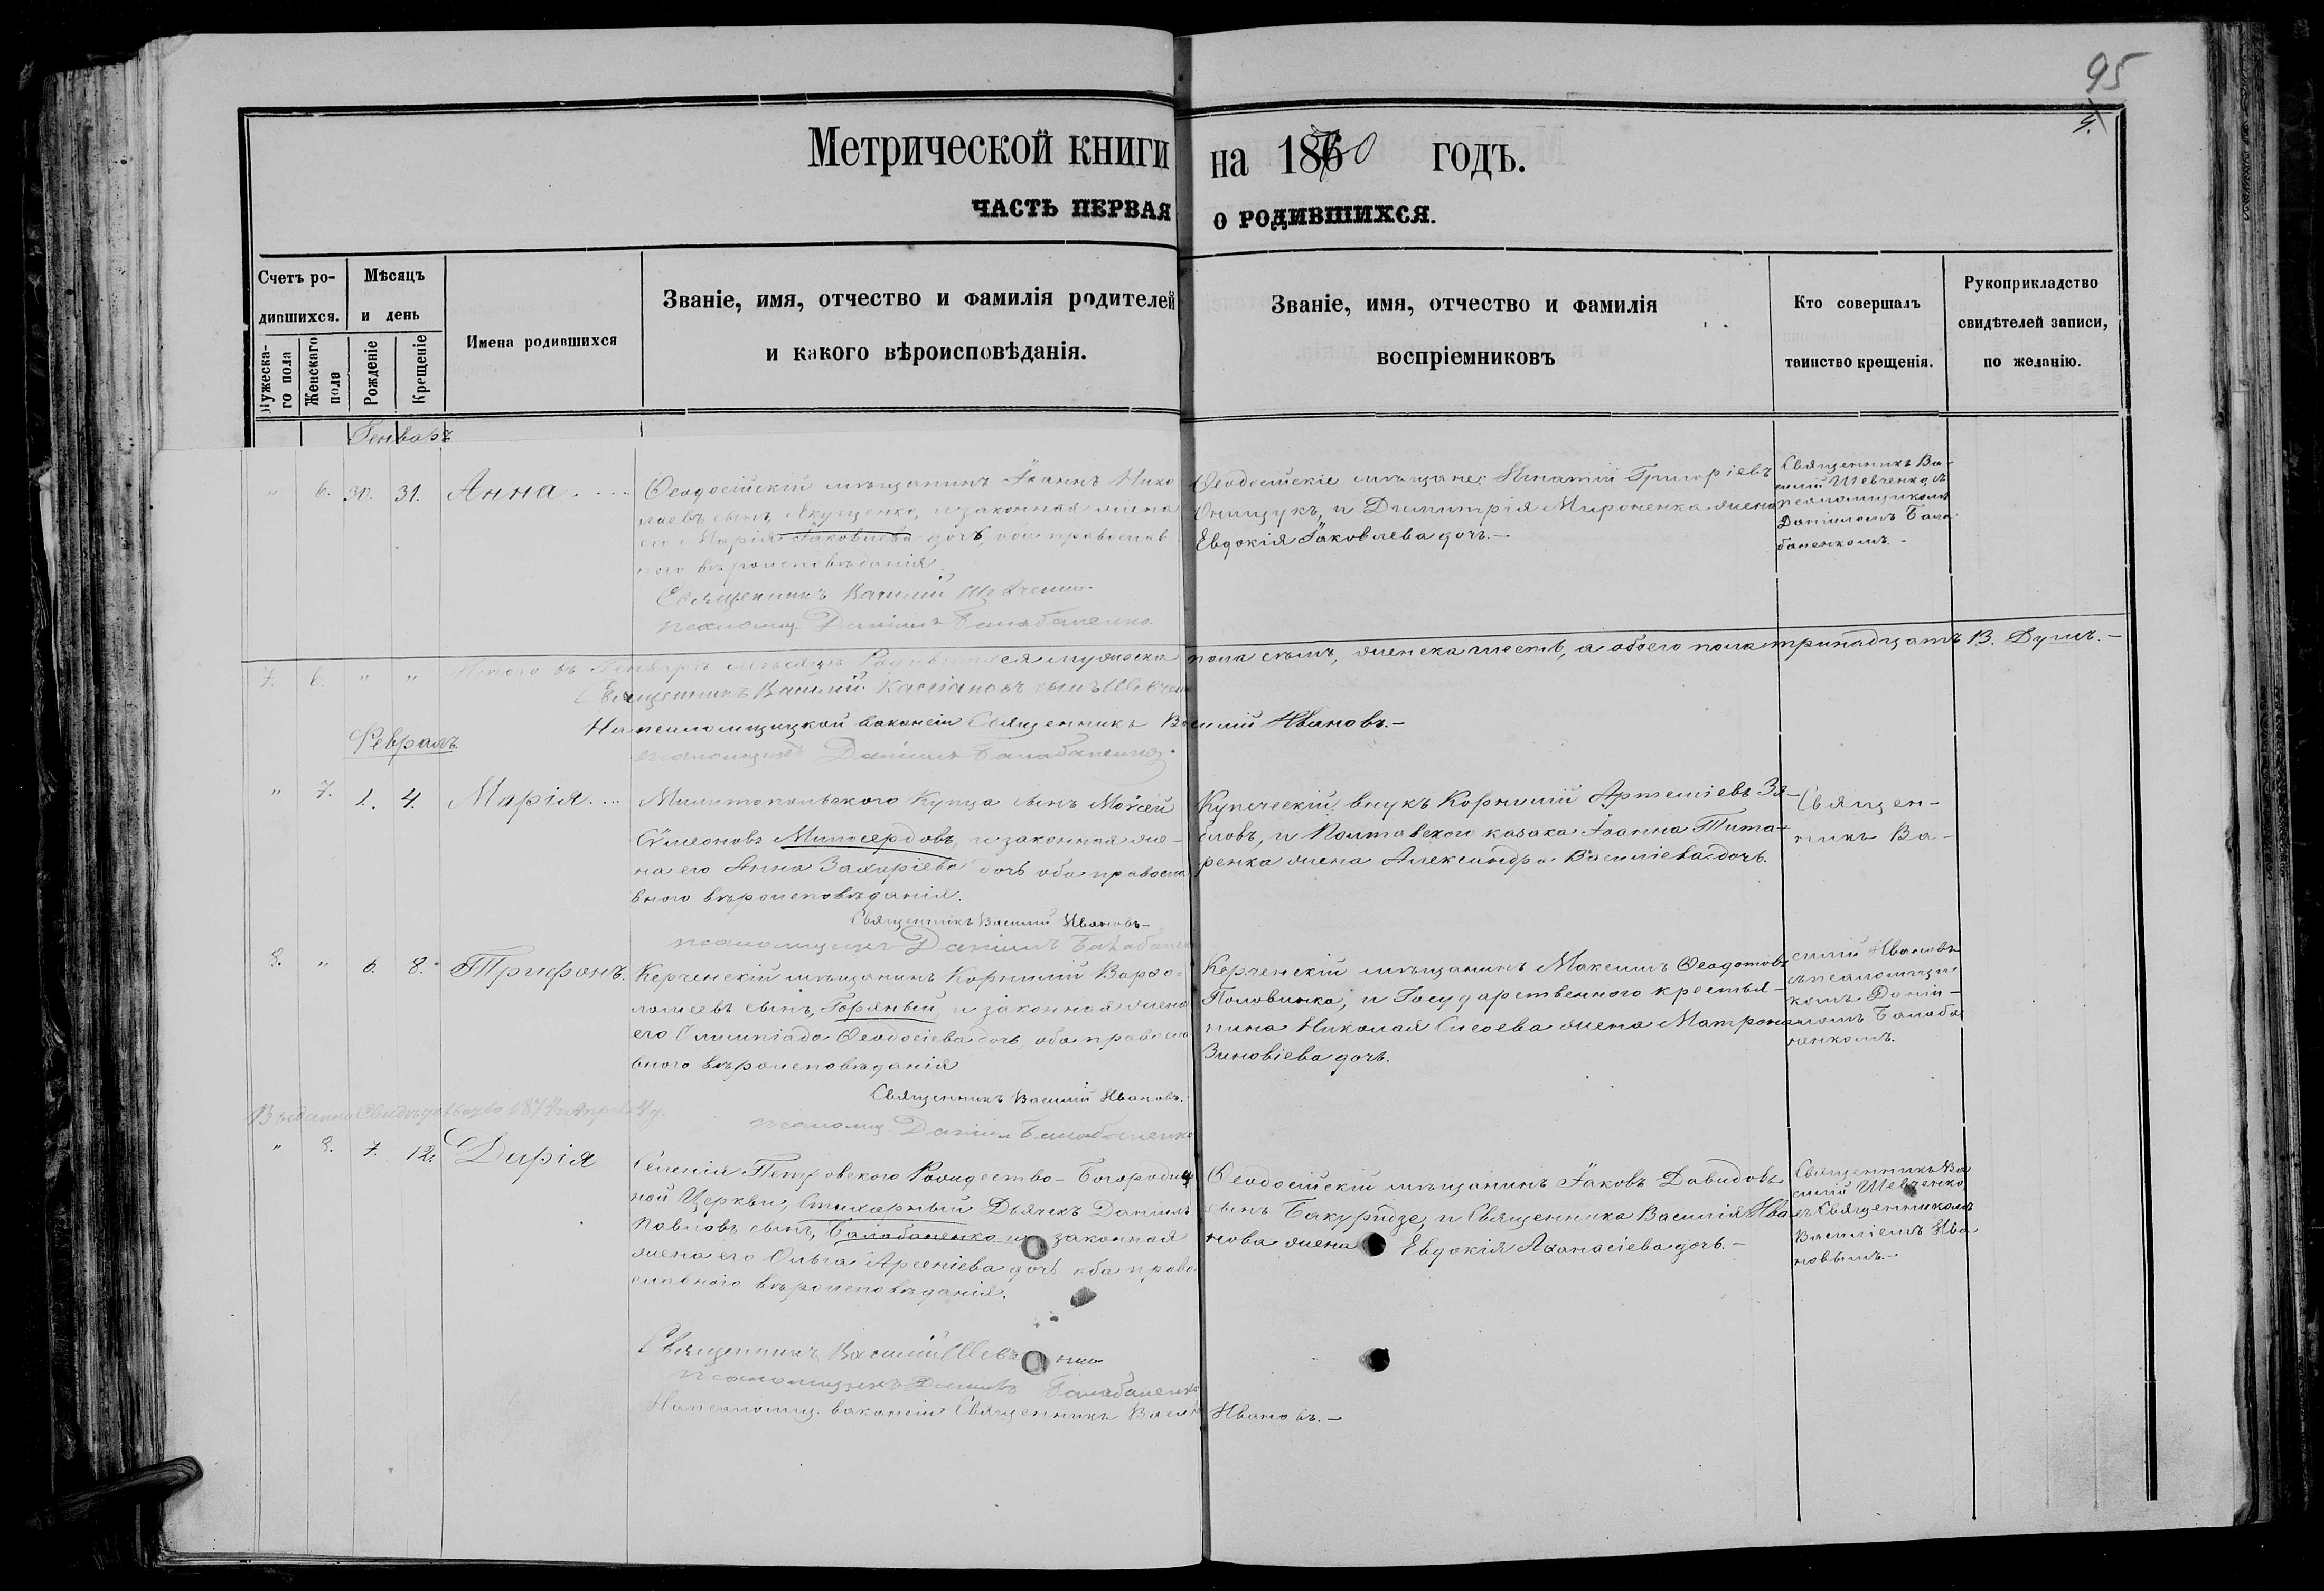 95
4.
Метрической книги на 1870 годъ.
ЧАСТЬ ПЕРВАЯ О РОДИВШИХСЯ.
Счетъ ро-
дившихся.
Мужеска-
го пола
Женскаго
пола
Мѣсяцъ
и день
Рожденіе
Крещеніе
Имена родившихся
Званіе, имя, отчество и фамилія родителей
и какого вѣроисповѣданія.
Званіе, имя, отчество и фамилія
воспріемниковъ
Кто совершалъ
таинство крещенія.
Рукоприкладство
свидѣтелей записи,
по желанію.
Генварь
" 6. 30. 31. Анна....
Ѳеодосійскій мѣщанинъ Іоаннъ Нико
лаевъ сынъ, Якущенко, и законная жена
его Марія Іаковлева дочь, оба православ
наго вѣроисповѣданія.
Священникъ Василій Шевченко
псаломщ. Даніилъ Балабаненко
Ѳеодосійскіе мѣщане: Игнатій Григоріевъ
Онищукъ, и Димитрія Мироненка жена
Евдокія Іаковлева дочь.—
Священникъ Ва-
силій Шевченко, съ
псаломщикомъ
Даніиломъ Бала
баненкомъ.-
7. 6. " " Итого въ Генварѣ мѣсяцѣ Родившихся мужеска пола семь, женска шесть, а обоего пола тринадцать 13. Душъ.—
Священникъ Василій Кассіановъ сынъ Шевчен
На псаломщицкой вакансіи Священникъ Василій Ивановъ.—
псаломщикъ Даніилъ Балабаненко.
Февраль
" 7. 1. 4. Марія....
Мелитопольского Купца сынъ Моѵсей
Сѵмеоновъ Милосердовъ, и законная же-
на его Анна Захаріева дочь оба правосла
вного вѣроисповѣданія.
Священникъ Василій Ивановъ—
псаломщикъ Даніилъ Балабанен
Купеческій внукъ Корнилій Артеміевъ Зя-
бловъ, и Полтавского казака Іоанна Тита-
ренка жена Александра Василіева дочь.
Священ-
никъ Ва-
8. " 6. 8. Трифонъ.
Керченскій мѣщанинъ Корнилій Варѳо-
ломеевъ сынъ, Горяный, и законная жена
его Олимпіада Ѳеодосіева дочь оба правосла
вного вѣроисповѣданія
Священникъ Василій Ивановъ.
псаломщ Даніил Балабаненко
Керченскій мѣщанинъ Максимъ Ѳеодотовъ
Половинка, и Государственного крестья-
нина Николая Сысоева жена Матрона
Зиновіева дочь.
силій Ивановъ
съ псаломщи-
комъ Даніи-
ломъ Балаба
ненкомъ.
Выданно Свидѣтельство 1874 г. Апрѣля 4 д.
" 8. 7. 12. Дарія
Селенія Петровского Рождество-Богородич
ной Церкви, Стихарный Дьячекъ Даніилъ
Павловъ сынъ, Балабаненко и законная
жена его Ольга Арсеніева дочь оба право
славного вѣроисповѣданія.
Священникъ Василій Шевченко
псаломщикъ Даніилъ Балабаненко
На псаломщ. вакансіи Священникъ Василій Ивановъ.—
Ѳеодосійскій мѣщанинъ Іаковъ Давидовъ
сынъ Бакуридзе, и Священника Василія Ива
нова жена Евдокія Аѳанасіева дочь.—
Священникъ Ва
силій Шевченко
съ Священникомъ
Василіемъ Ива
новымъ.-